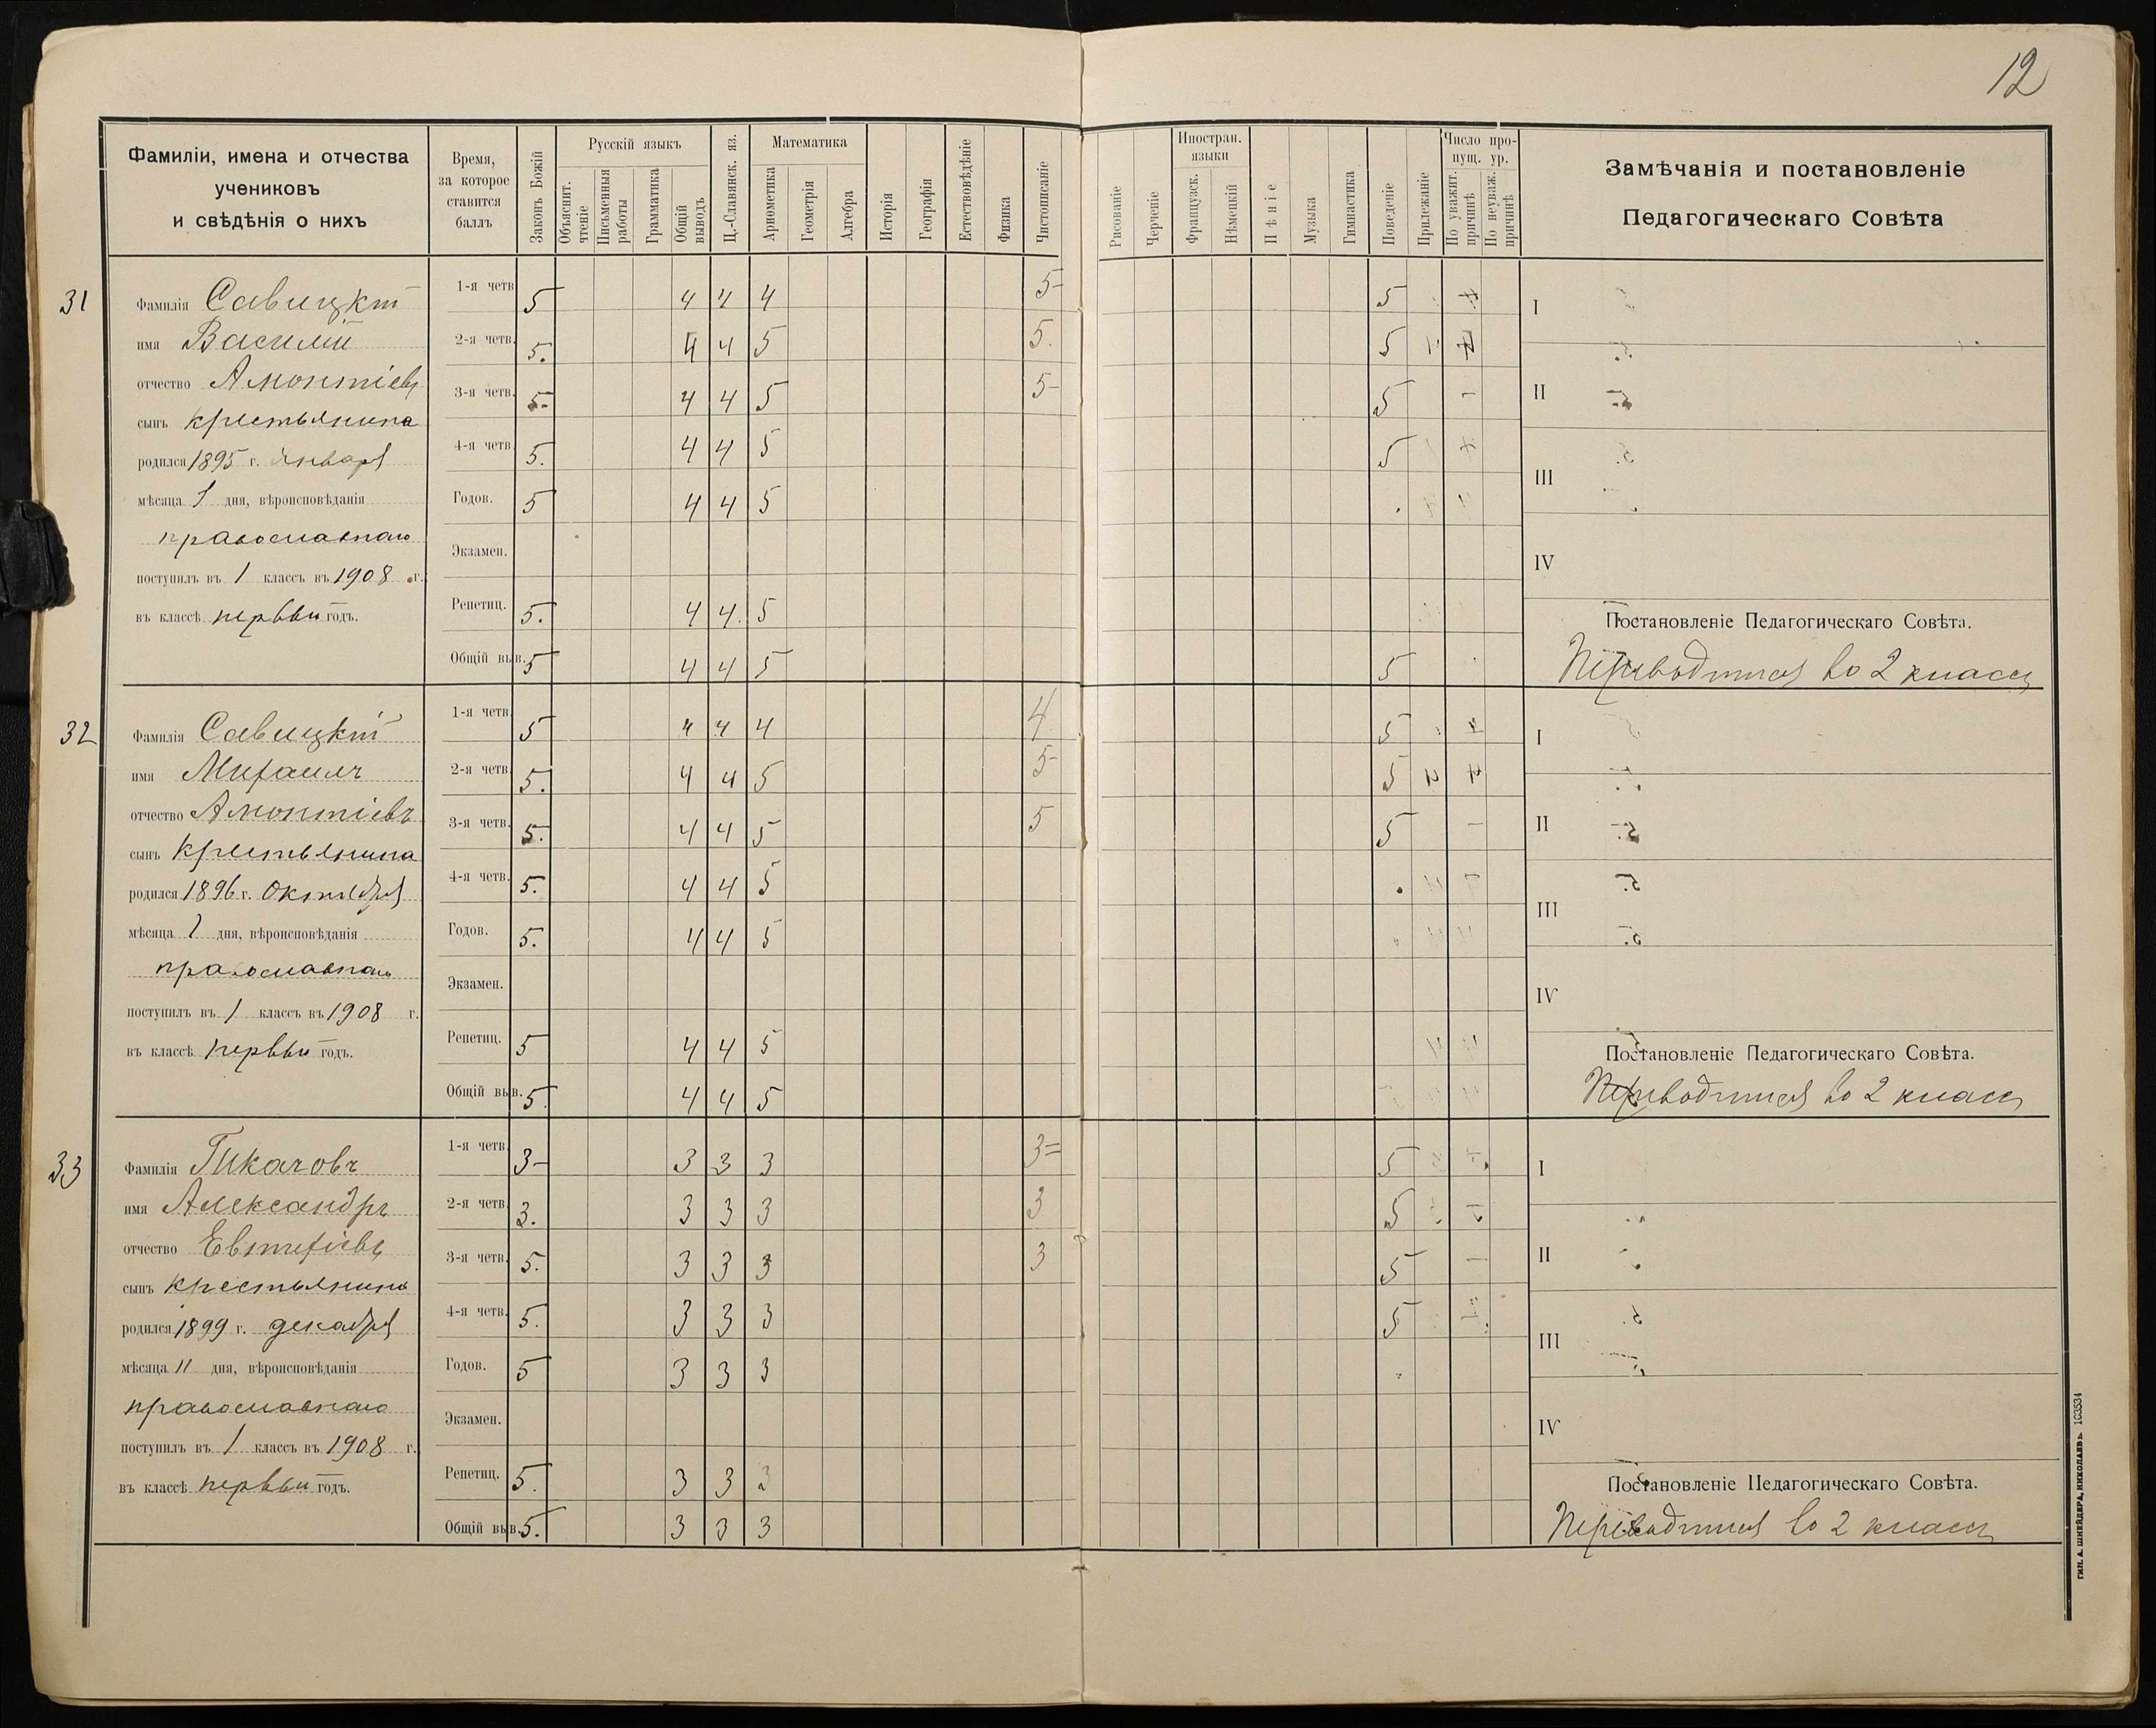 12
Фамиліи, имена и отчества
учениковъ
и свѣдѣнія о нихъ
Время,
за которое
ставится
баллъ
Законъ Божій
Русскій языкъ
Объяснит. чтеніе
Письменныя работы
Грамматика
Общій выводъ
Ц.-Славянск. яз.
Математика
Ариѳметика
Геометрія
Алгебра
Исторія
Географія
Естествовѣдѣніе
Физика
Чистописаніе
Рисованіе
Черченіе
Иностран. языки
Французск.
Нѣмецкій
Пѣніе
Музыка
Гимнастика
Поведеніе
Прилежаніе
Число пропущ. ур.
По уважит. причинѣ
По неуваж. причинѣ
Замѣчанія и постановленіе
Педагогическаго Совѣта
31
Фамилія Савицкій
имя Василій
отчество Амонтіевъ
сынъ крестьянина
родился 1895 г. января
мѣсяца 1 дня, вѣроисповѣданія
православнаго
поступилъ въ 1 классъ въ 1908 г.
въ классѣ первый годъ.
1-я четв. 5 4 4 4 5- 5
2-я четв. 5. 4 4 5 5. 5
3-я четв. 5- 4 4 5 5- 5 -
4-я четв. 5. 4 4 5 5
Годов. 5 4 4 5
Экзамен.
Репетиц. 5. 4 4. 5
Общій выв. 5 4 4 5 5
I
II
III
IV
Постановленіе Педагогическаго Совѣта.
Переводится во 2 классъ
32
Фамилія Савицкій
имя Михаилъ
отчество Амонтіевъ
сынъ крестьянина
родился 1896 г. октября
мѣсяца 1 дня, вѣроисповѣданія
православнаго
поступилъ въ 1 классъ въ 1908 г.
въ классѣ первый годъ.
1-я четв. 5 4 4 4 4. 5
2-я четв. 5. 4 4 5 5- 5
3-я четв. 5. 4 4 5 5 5 -
4-я четв. 5. 4 4 5
Годов. 5. 4 4 5
Экзамен.
Репетиц. 5 4 4 5
Общій выв. 5. 4 4 5
I
II
III
IV
Постановленіе Педагогическаго Совѣта.
Переводится во 2 классъ
33
Фамилія Ткачовъ
имя Александръ
отчество Евтихіевъ
сынъ крестьянина
родился 1899 г. декабря
мѣсяца 11 дня, вѣроисповѣданія
православнаго
поступилъ въ 1 классъ въ 1908 г.
въ классѣ первый годъ.
1-я четв. 3- 3 3 3 3= 5
2-я четв. 3. 3 3 3 3 5
3-я четв. 5. 3 3 3 3 5 -
4-я четв. 5. 3 3 3 5
Годов. 5 3 3 3
Экзамен.
Репетиц. 5. 3 3 3
Общій выв. 5. 3 3 3
I
II
III
IV
Постановленіе Педагогическаго Совѣта.
Переводится во 2 классъ
ТИП. А. ШНЕЙДЕРА, НИКОЛАЕВЪ.